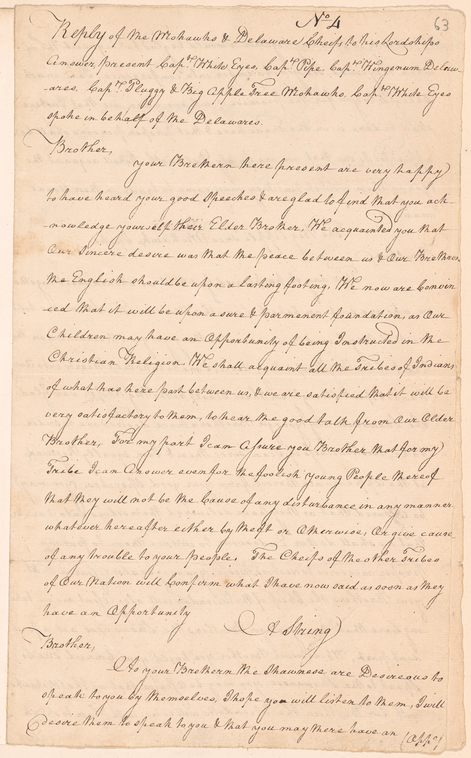 No 4
63
Reply of the Mohawks & Delaware Cheifs to his Lordships
Answer, present Capn. White Eyes, Capn. Pipe, Capn. Wingenum Delaw-
-ares, Capn. Pluggy & Big Apple Tree Mohawks, Capn. White Eyes
spoke in behalf of the Delawares.
Brother,
your Brethern here present are very happy
to have heard your good Speeches & are glad to find that you ack-
-nowledge yourself their Elder Brother, We acquainted you that
Our Sincere desire was that the peace between us & Our Brethren
the English should be upon a lasting footing, We now are Convin-
ced that it will be upon a sure & parmenent foundation, as Our
Children may have an Opportunity of being Instructed in the
Christian Religion. We shall acquaint all the Tribes of Indians
of what has here past between us, & we are satisfied that it will be
very satisfactory to them, to hear the good talk from Our Elder
Brother, For my part I can assure you Brother that for my
Tribe I can Answer even for the foolish young People thereof
that they will not be the Cause of any disturbance in any manner
whatever hereafter either by theft or Otherwise, Or give cause
of any trouble to your people, The Cheifs of the other Tribes
of Our Nation will Confirm what I have now said as soon as they
have an Opportunity
A String
Brother,
As your Brethern the Shawnese are Desireous to
speak to you by themselves, I hope you will listen to them, I will
desire them to speak to you & that you may there have an
(Oppy)